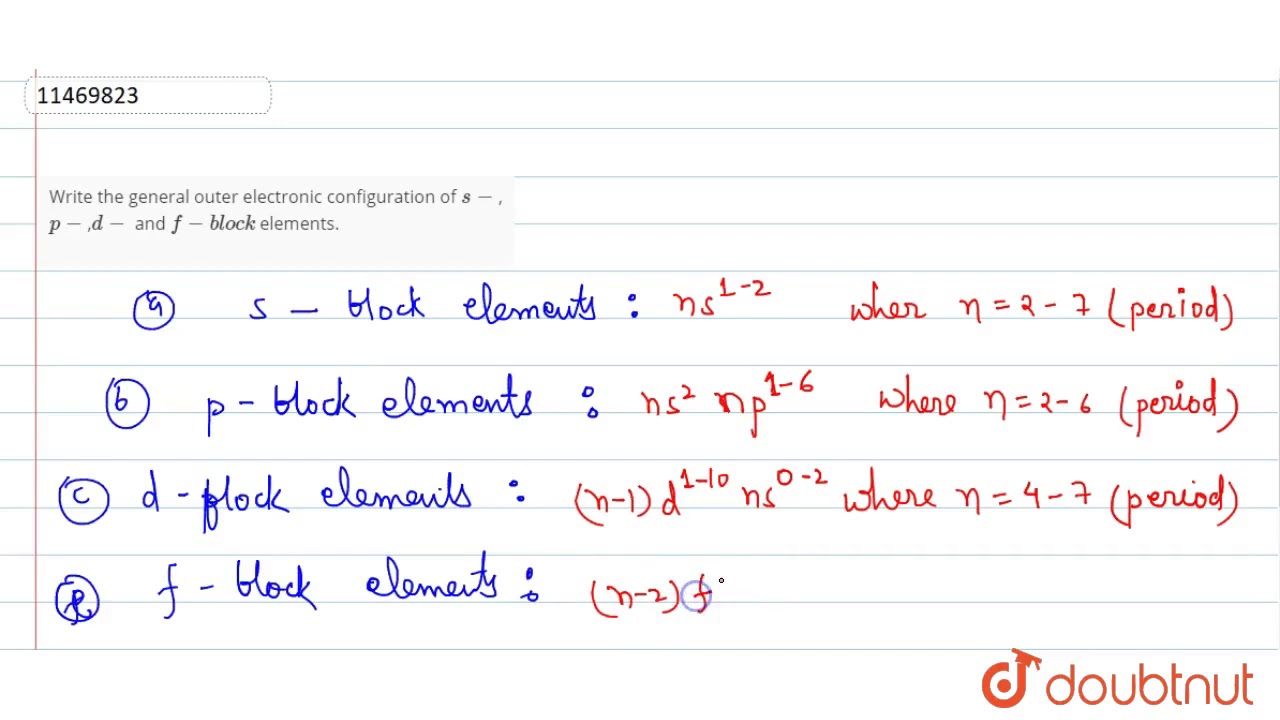 11469823
Write the general outer electronic configuration of s − ,
p − ,d − and f − block elements.
a s - block elements : ns¹⁻² wher n = 2 - 7 (period)
b p - block elements : ns² np¹⁻⁶ where n = 2 - 6 (period)
c d - block elements : (n-1) d¹⁻¹⁰ ns⁰⁻² where n = 4 - 7 (period)
f - block elements : (n-2) f
doubtnut